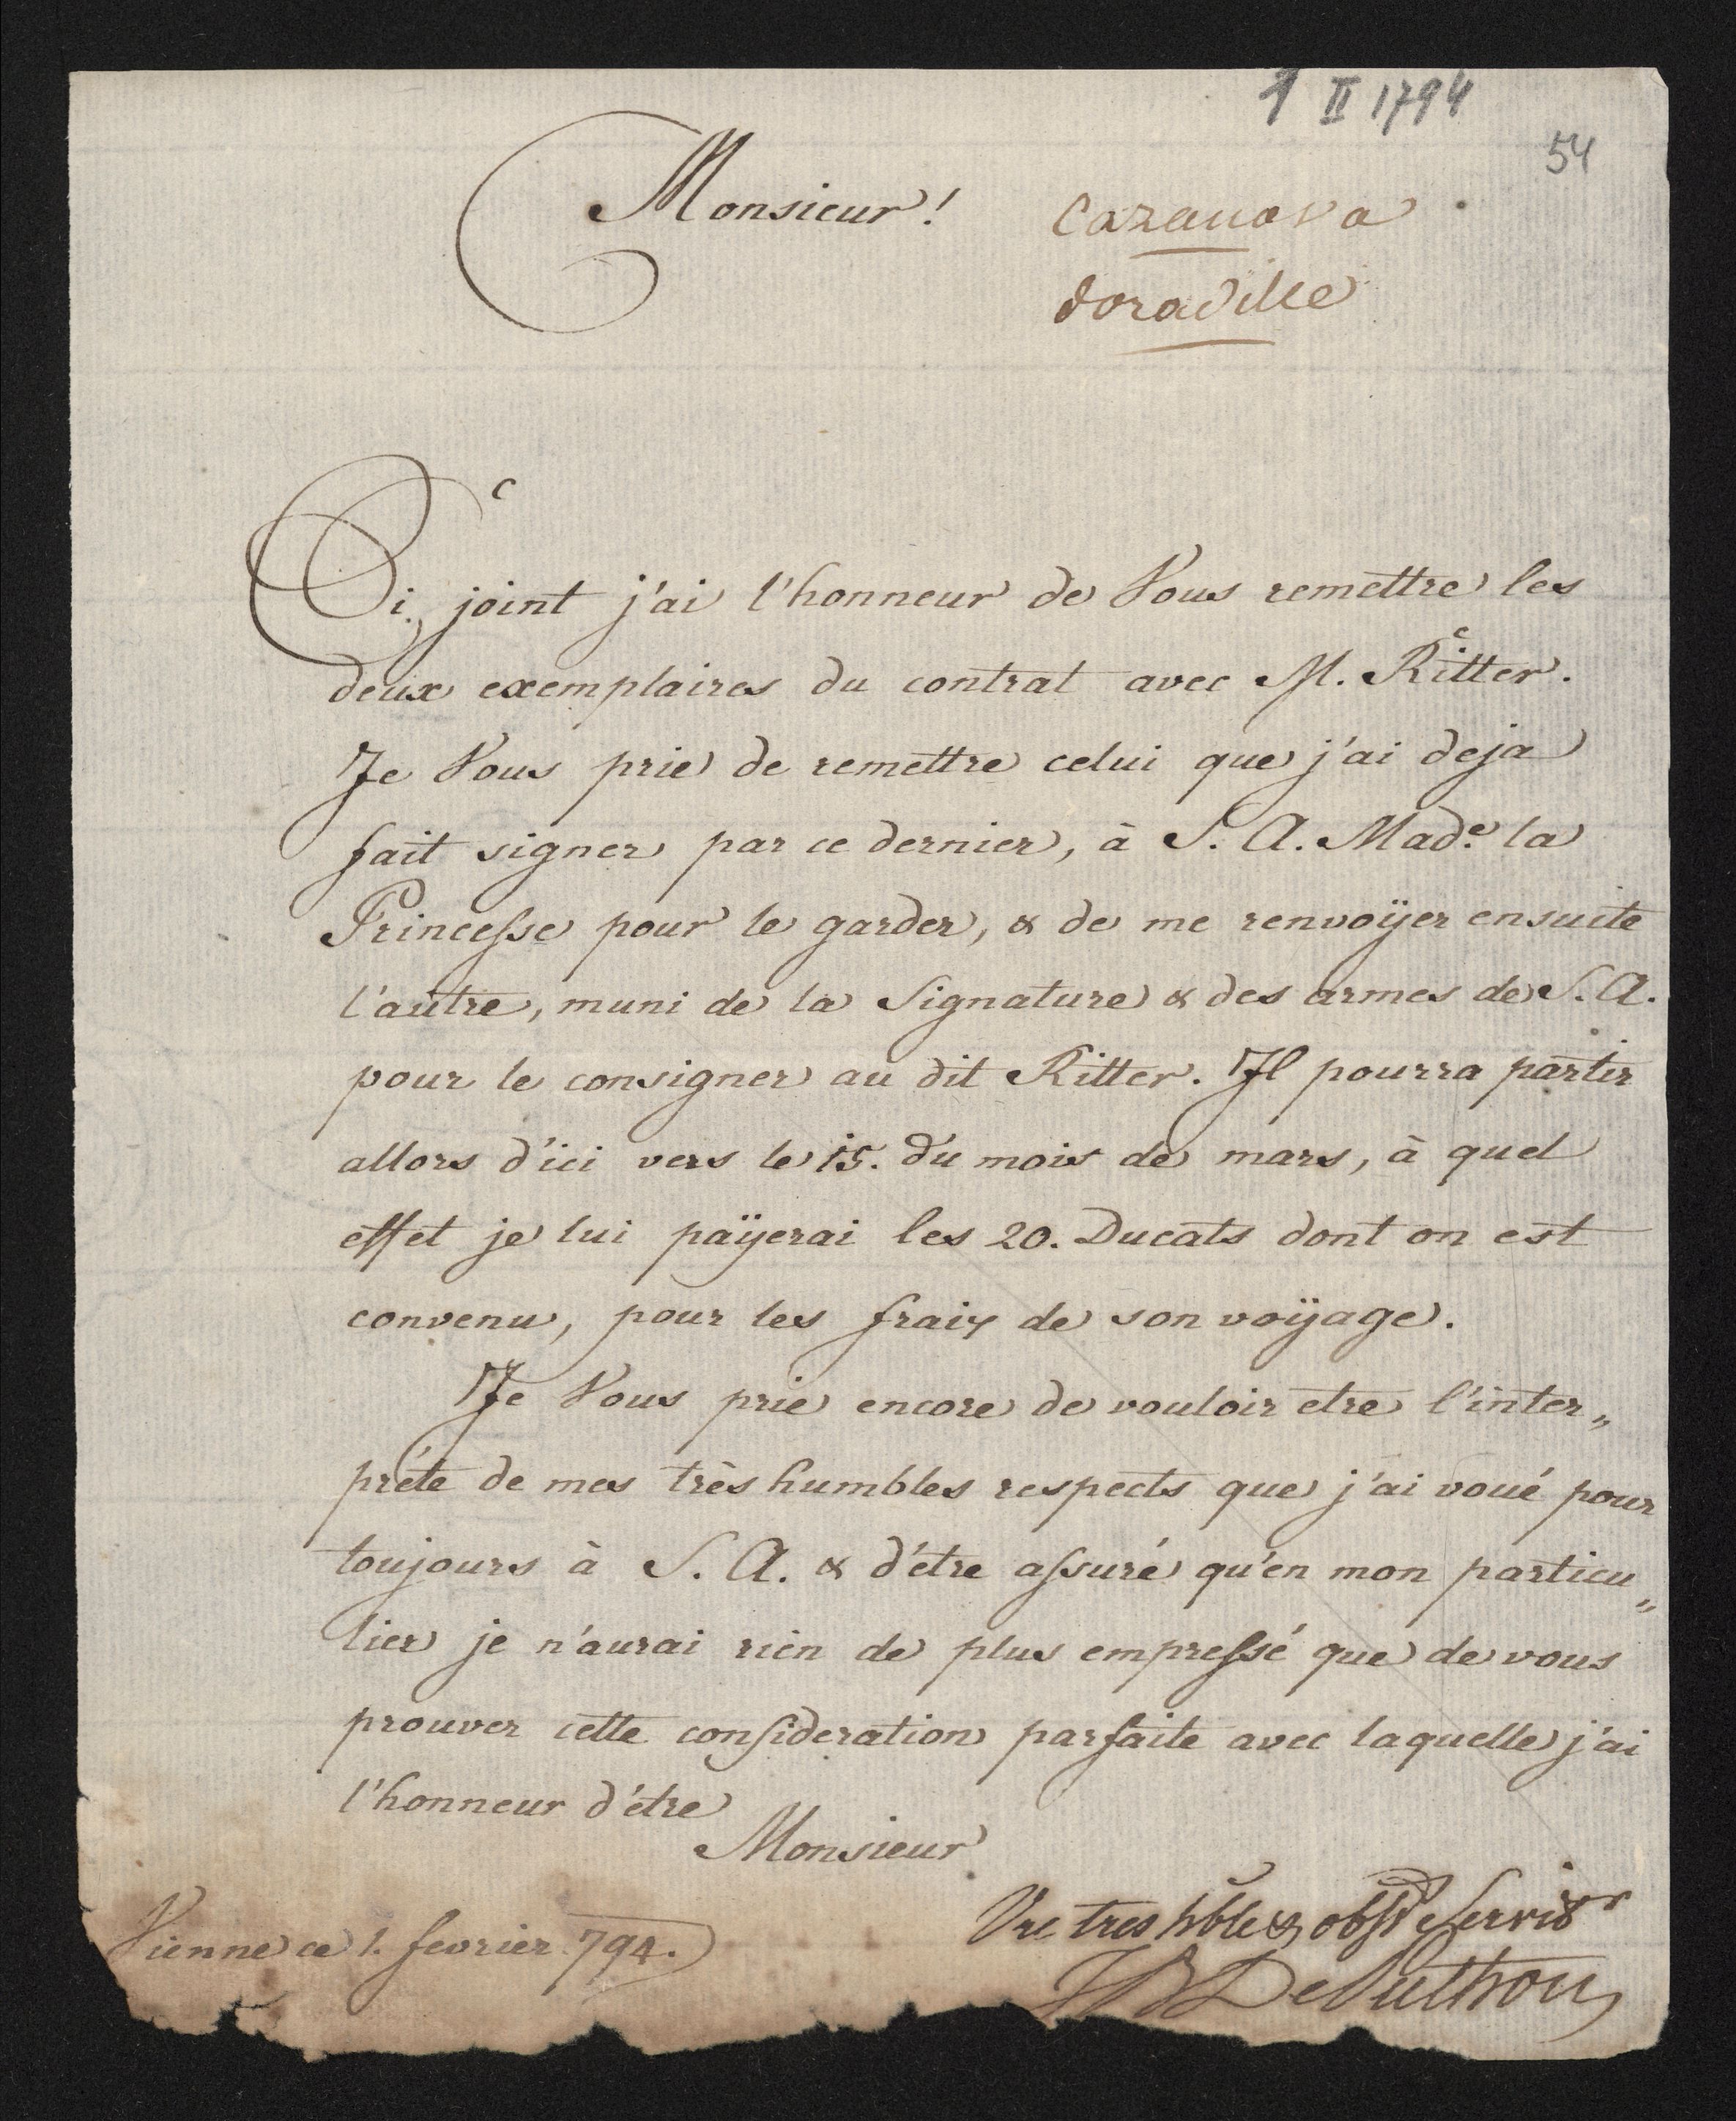 1 II 1794
54
Monsieur!
Cazanova
doraville
Ci joint j'ai l'honneur de Vous remettre les
deux exemplaires du contrat avec M. Ritter.
Je Vous prie de remettre celui que j'ai deja
fait signer par ce dernier, à S. A. Made. la
Princesse pour le garder, & de me renvoÿer ensuite
l'autre, muni de la Signature & des armes de S. A.
pour le consigner au dit Ritter. Il pourra partir
allors d'ici vers le 15. du mois de mars, à quel
effet je lui paÿerai les 20. Ducats dont on est
convenu, pour les fraix de son voÿage.
Je Vous prie encore de vouloir etre l'inter„
préte de mes très humbles respects que j'ai voué pour
toujours à S. A. & d'étre assuré qu'en mon particu„
lier je n'aurai rien de plus empressé que de vous
prouver cette consideration parfaite avec laquelle j'ai
l'honneur d'étre
Monsieur
Vre tres hble & obst Servitr
Vienne ce 1. fevrier 794.
JB De Puthon